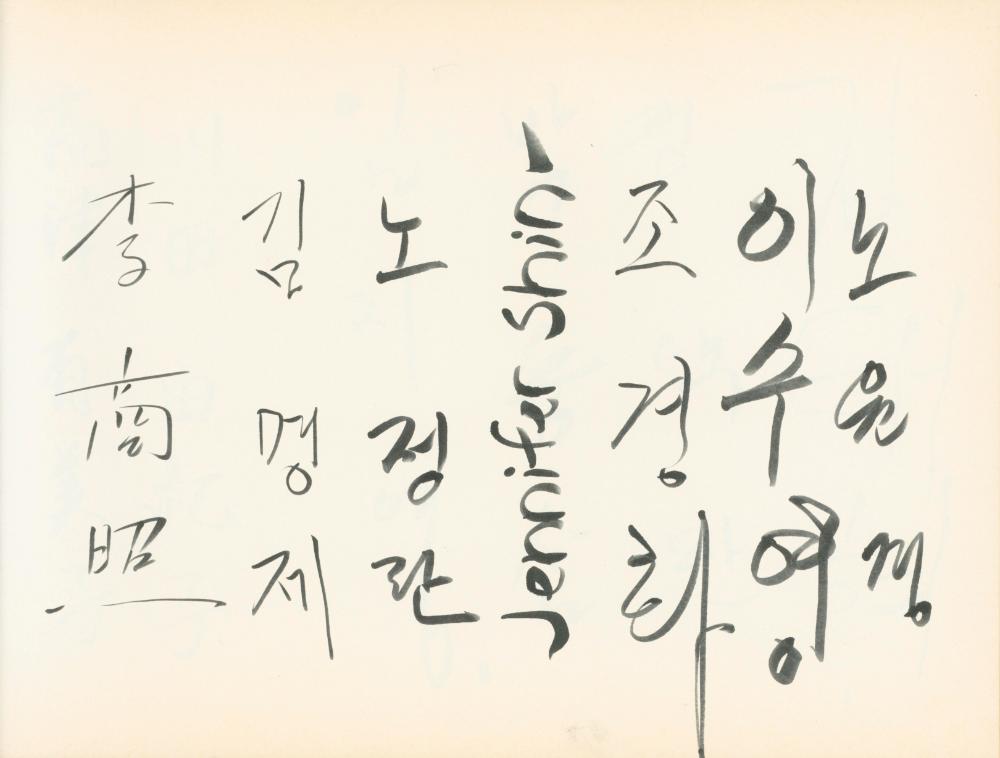 李商照
김명제
노정란
Jennifer Shin
조경화
이수영
노윤경